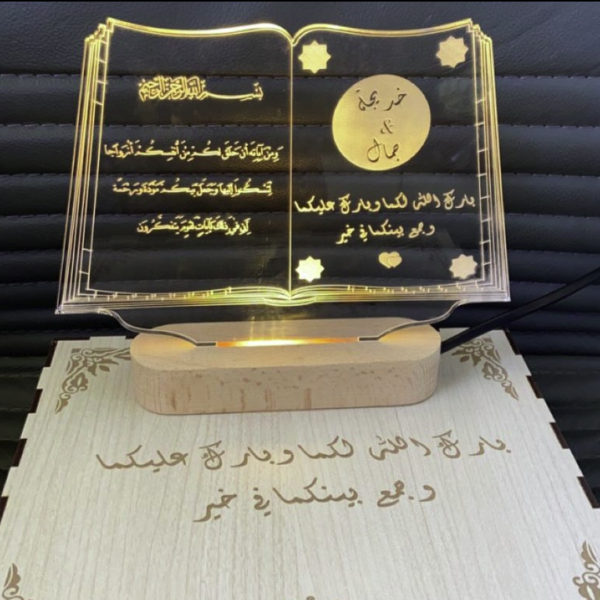 بسم الله الرحمن الرحيم
ومن آياته أن خلق لكم من أنفسكم أزواجا
لتسكنوا إليها وجعل بينكم مودة ورحمة
إن في ذلك لآيات لقوم يتفكرون
خديجة
&
جمال
بارك الله لكما وبارك عليكما
وجمع بينكما في خير
بارك الله لكما وبارك عليكما
وجمع بينكما في خير